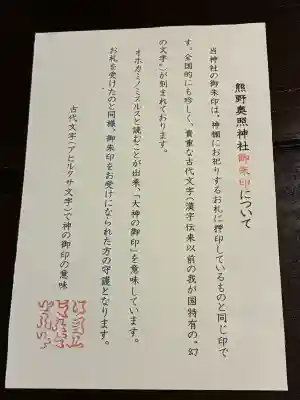 熊野奥照神社御朱印について
当神社の御朱印は、神棚にお祀りするお札に押印しているものと同じ印で
す。全国的にも珍しく、貴重な古代文字(漢字伝来以前の我が国特有の“幻
の文字”)が刻まれております。
オホカミノミスルスと読むことが出来、「大神の御印」を意味しています。
お札を受けたのと同様、御朱印をお受けになられた方の守護となります。
古代文字(アヒルクサ文字)で神の御印の意味